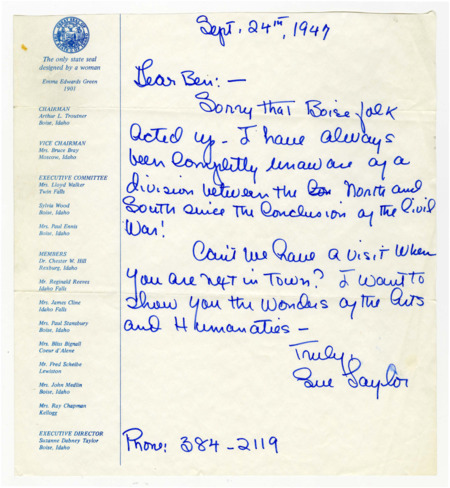 The only state seal
designed by a woman
Emma Edwards Green
1901
CHAIRMAN
Arthur L. Troutner
Boise, Idaho
VICE CHAIRMAN
Mrs. Bruce Bray
Moscow, Idaho
EXECUTIVE COMMITTEE
Mrs. Lloyd Walker
Twin Falls
Sylvia Wood
Boise, Idaho
Mrs. Paul Ennis
Boise, Idaho
MEMBERS
Dr. Chester W. Hill
Rexburg, Idaho
Mr. Reginald Reeves
Idaho Falls
Mrs. James Cline
Idaho Falls
Mrs. Paul Stansbury
Boise, Idaho
Mrs. Bliss Bignall
Coeur d'Alene
Mr. Fred Scheibe
Lewiston
Mrs. John Medlin
Boise, Idaho
Mrs. Ray Chapman
Kellogg
EXECUTIVE DIRECTOR
Suzanne Dabney Taylor
Boise, Idaho
Sept. 24th, 1947
Dear Ben: —
Sorry that Boise folk
acted up - I have always
been Completly unaware of a
division between the North and
South since the Conclusion of the Civil
War!
Can't we have a visit when
you are next in Town? I want to
show you the wonders of the Arts
and Humanaties —
Truly,
Sue Taylor
Phone: 384-2119